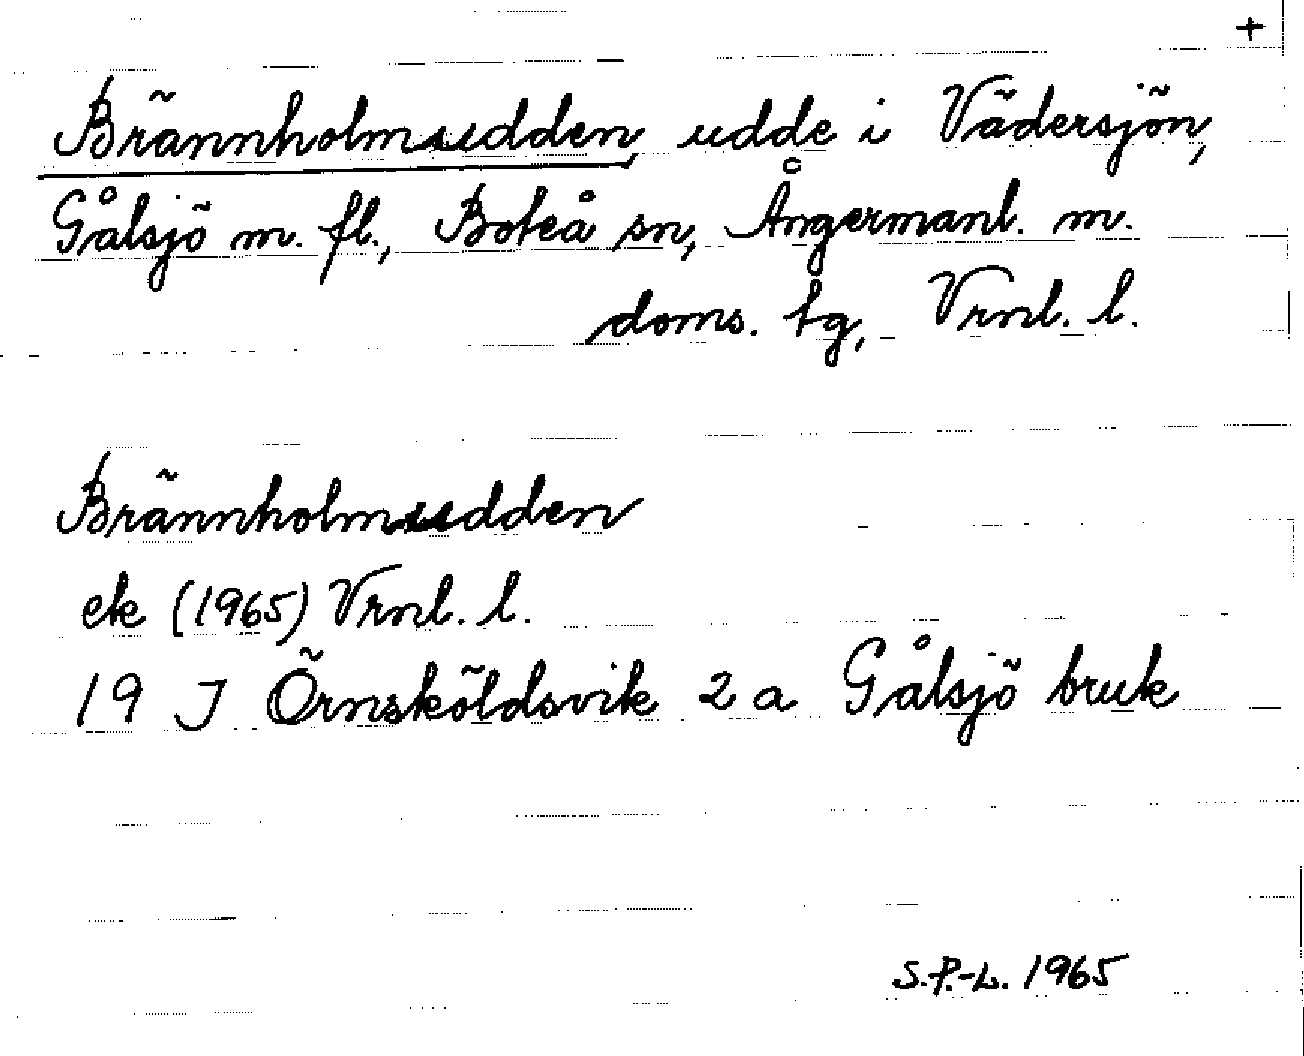 +
Brännholmsudden, udde i Vädersjön,
Gålsjö m. fl., Boteå sn, Ångermanl. m.
doms. tg, Vrnl. l.
Brännholmsudden
ek (1965) Vrnl. l.
19 J Örnsköldsvik 2 a Gålsjö bruk
S.P.-L. 1965